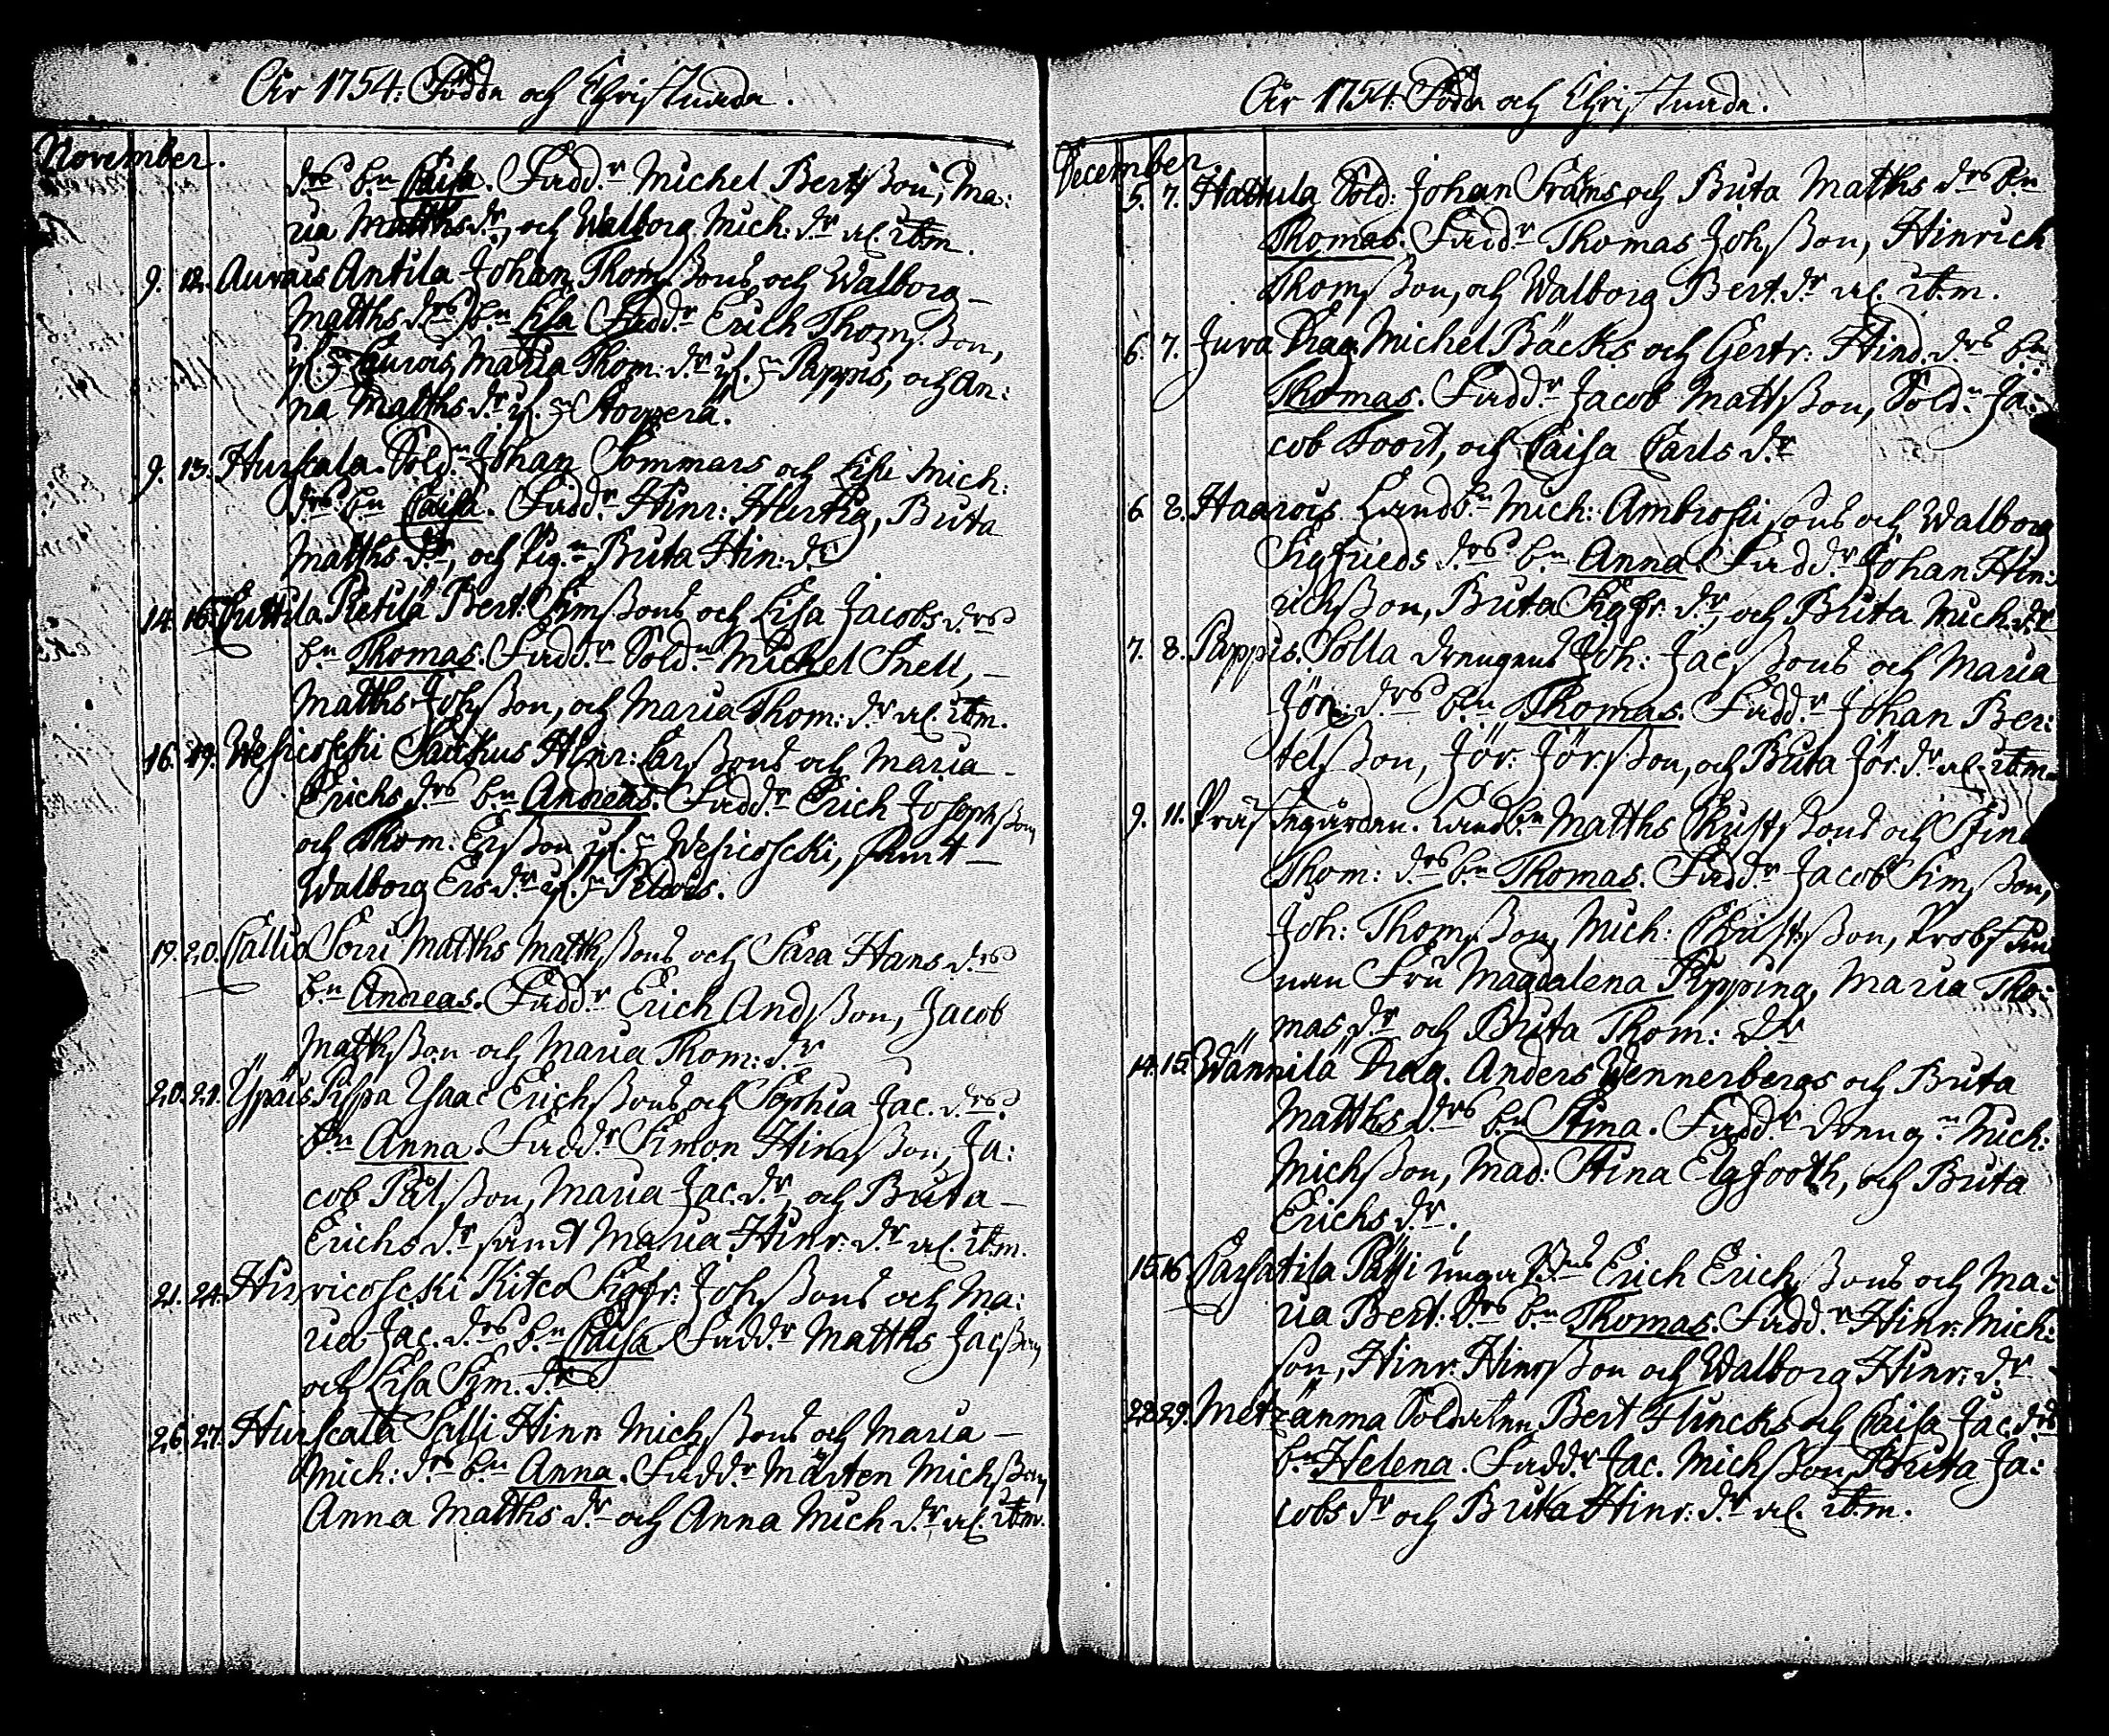 År 1754. Födde och Christnade.
November.
d:rs b:n Caisa. Fadd:r Michel Bertsson, Ma:
ria Matths d:r, och Walborg Mich: d:r al. ib:m.
9. 12. Auvais Antila Johan Thomssons och Walborg
Matths d:rs b:n Lisa Fadd:r Erich Thomsson,
Maria Thom: d:r Pappis, och An:
na Matths d:r
9. 13. Hurscala. Sold:n Johan Sommars och Lisa Mich:
d:rs b:n Caisa. Fadd:r Hinr: Hurtig, Brita
Matths d:r, och Pig:n Brita Hin: d:r
14. 16. Cuttila Pietilä Bert: Simssons och Lisa Jacobs d:rs
b:n Thomas. Fadd:r Sold:n Michel Snell,
Matths Johsson, och Maria Thom: d:r al. ib:m.
16. 19. Wesicoscki Hinr: Larssons och Maria
Erichs d:rs b:n Andreas. Fadd:r Erich Josephsson
och Thom: Ersson Wesicoscki, samt
Walborg Ers d:r
19. 20. Callio Sorri Matths Matthssons och Sara Hans d:rs
b:n Andreas. Fadd:r Erich Andsson, Jacob
Matthsson och Maria Thom: d:r
20. 21. Ypäis Pispa Ysaac Erichssons och Sophia Jac. d:rs
b:n Anna. Fadd:r Simon Hinrsson, Ja:
cob Pålsson, Maria Jac. d:r, och Brita
Erichs d:r samt Maria Hinr: d:r al. ib:m.
21. 24. Hirvicoscki Kitco Sigfr: Johssons och Ma:
ria Jac. d:rs b:n Caisa Fadd:r Matths Jacsson
och Lisa Sim. d:r
26. 27. Hurscala Salli Hinr Michssons och Maria
Mich: d:rs b:n Anna. Fadd:r Mårten Michsson
Anna Matths d:r och Anna Mich d:r al. ib:m.
År 1754. Födde och Christnade.
December
5. 7. Hattula Sold: Johan Fråms och Brita Matths d:rs b:n
Thomas. Fadd:r Thomas Johsson, Hinrich
Thomsson, och Walborg Bert. d:r al. ib:m.
6. 7. Juva Drag. Michel Bäcks och Gertr: Hind. d:rs b:n
Thomas. Fadd:r Jacob Mattsson, Sold:n Ja:
cob Foort, och Caisa Carls d:r
6 8. Haarois Landb:n Mich: Ambrosii sons och Walborg
Sigfrieds d:rs b:n Anna. Fadd:r Johan Hin:
richsson, Brita Sigfr. d:r, och Brita Mich. d:r
7. 8. Pappis. Solla drengens Joh: Jacssons och Maria
Jör: d:rs b:n Thomas. Fadd:r Johan Ber:
telsson, Jör: Jörsson, och Brita Jör. d:r al. ib:m.
9. 11. Prästegården. Landb:n Matths Christssons och Stina
Thom: d:rs b:n Thomas. Fadd:r Jacob Simsson,
Joh: Thomsson, Mich: Christsson, Probstin
nan Fru Magdalena Pipping, Maria Tho:
mas d:r och Brita Thom: d:r
14. 15. Wännilä Drag. Anders Wennerbergs och Brita
Matths d:rs b:n Stina. Fadd:r Dreng:n Mich:
Michsson, Mad: Stina Elgfooth, och Brita
Erichs d:r.
15. 16. Carsatila Pässi Erich Erichssons och Ma:
ria Bert: d:rs b:n Thomas. Fadd:r Hinr: Mich:
son, Hinr. Hinrsson och Walborg Hinr: d:r
28. 29. Metzänma Soldatens Bert Funcks och Caisa Jac. d:rs
b:n Helena. Fadd:r Jac. Michsson, Brita Ja:
cobs d:r och Brita Hinr: d:r al. ib:m.